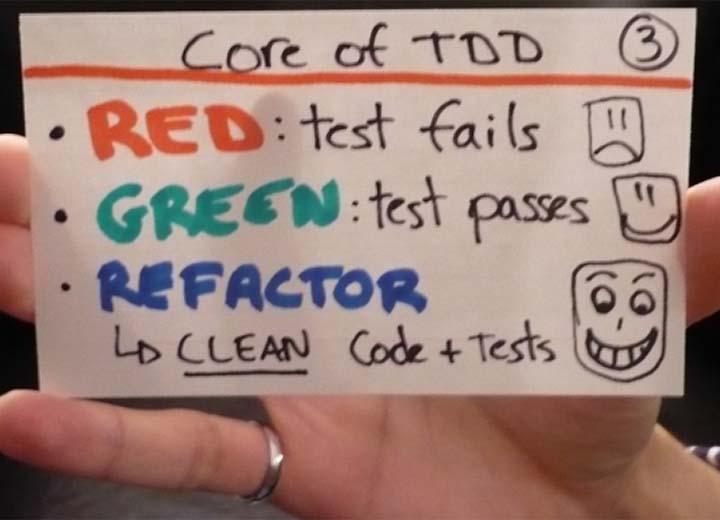 Core of TDD 3
• RED: test fails
• GREEN: test passes
• REFACTOR
↳ CLEAN Code + Tests